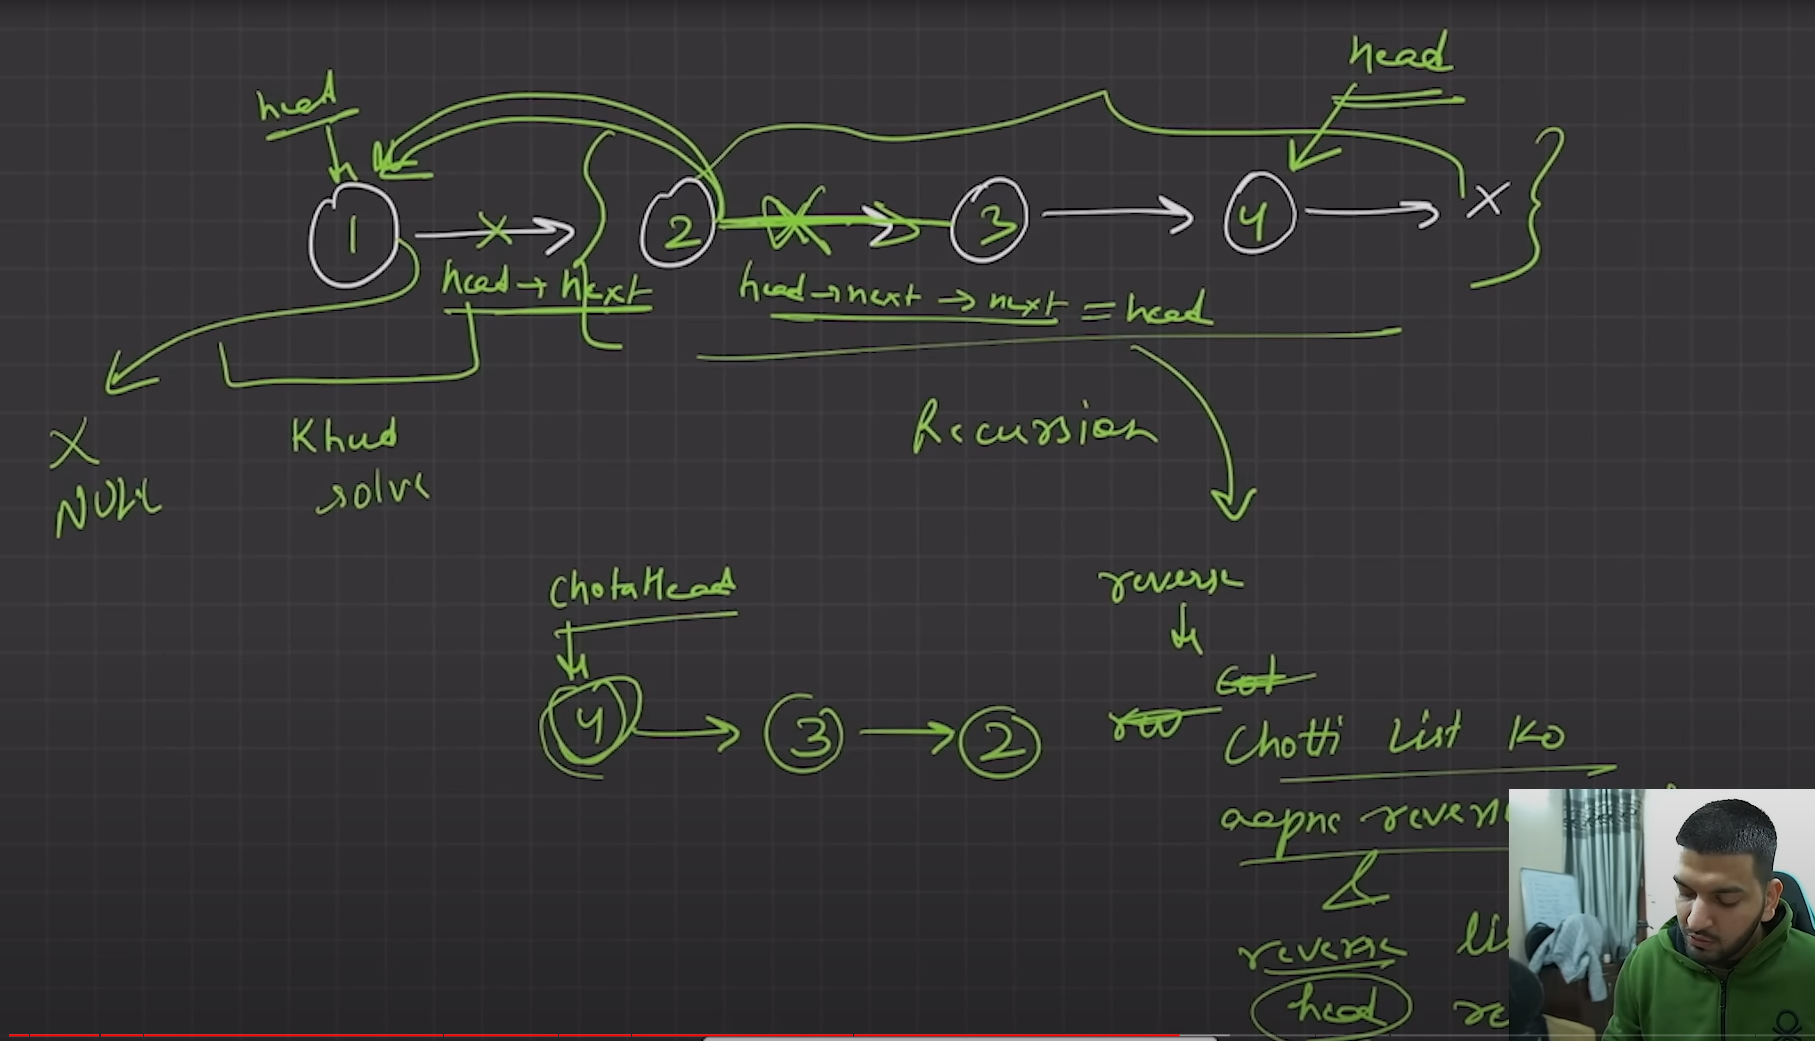 head
head
1
2
3
4
X
head → next
head → next → next = head
X
NULL
Khud
solve
Recursion
chotaHead
4
3
2
reverse
Chotti List Ko
reverse
head